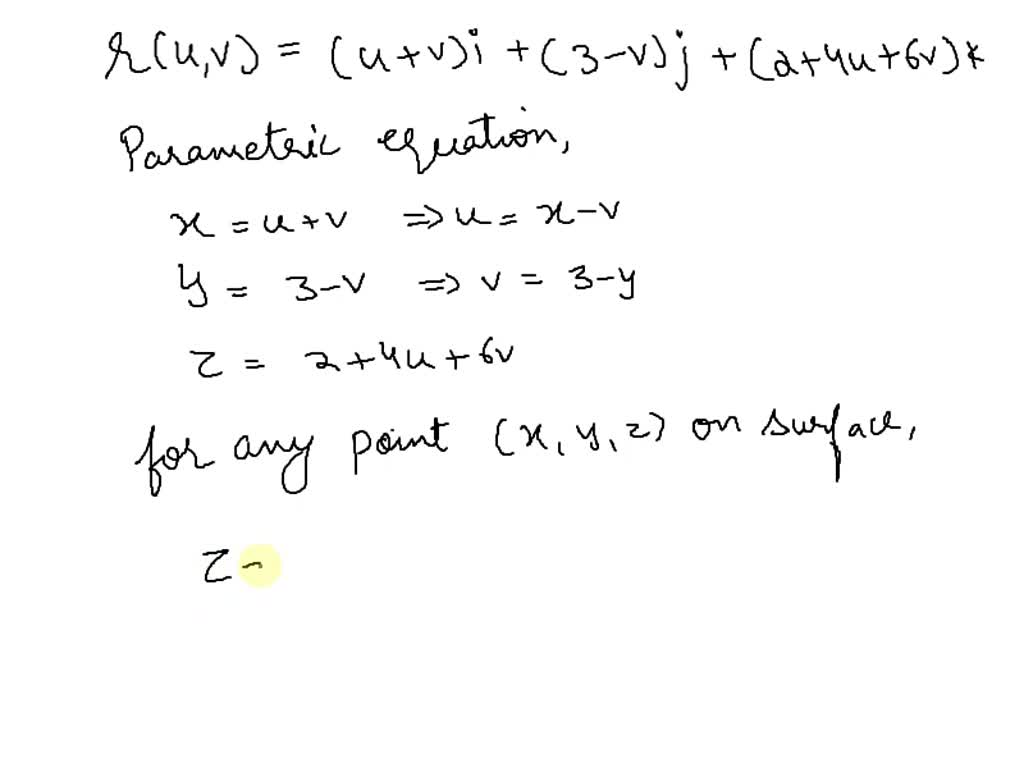 r(u,v) = (u+v)i + (3-v)j + (2+4u+6v)k
Parametric equation,
x = u+v ⇒ u = x-v
y = 3-v ⇒ v = 3-y
z = 2+4u+6v
for any point (x, y, z) on surface,
z -